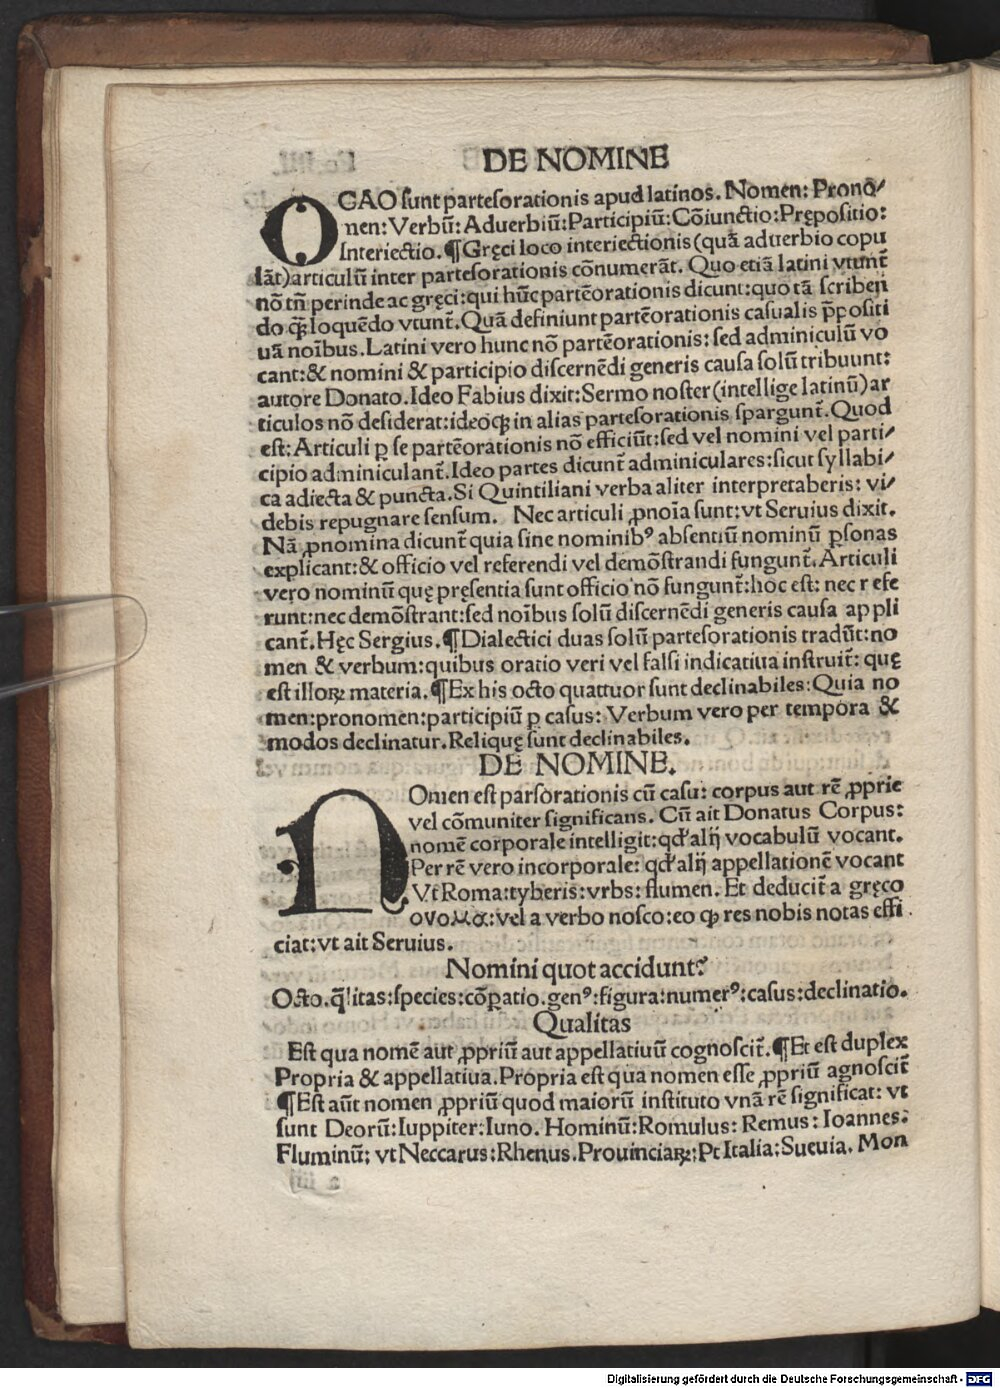 DE NOMINE
OCAO sunt partesorationis apud latinos. Nomen: Pronō/
nen: Verbū: Aduerbiū: Participiū: Cōiunctio: Prępositio:
Interiectio. ¶Gręci loco interiectionis (quā aduerbio copu
lāt) articulū inter partesorationis cōnumerāt. Quo etiā latini vtunt̄
nō tn̄ perinde ac gręci: qui hūc partēorationis dicunt: quo tā scriben
do q̄ꝫ loquēdo vtunt̄. Quā definiunt partēorationis casualis p̄positi
uā noībus. Latini vero hunc nō partēorationis: sed adminiculū vo
cant: & nomini & participio discernēdi generis causa solū tribuunt:
autore Donato. Ideo Fabius dixit: Sermo noster (intellige latinū) ar
ticulos nō desiderat: ideoqꝫ in alias partesorationis spargunt̄. Quod
est: Articuli ꝑ se partēorationis nō efficiūt: sed vel nomini vel parti/
cipio adminiculant̄. Ideo partes dicunt̄ adminiculares: sicut syllabi/
ca adiecta & puncta. Si Quintiliani verba aliter interpretaberis: vi/
debis repugnare sensum. Nec articuli ꝓnoīa sunt: vt Seruius dixit.
Nā ꝓnomina dicunt̄ quia sine nominibꝰ absentiū nominū ꝑsonas
explicant: & officio vel referendi vel demōstrandi fungunt̄. Articuli
vero nominū quę pręsentia sunt officio nō fungunt̄: hoc est: nec refe
runt: nec demōstrant: sed noībus solū discernēdi generis causa appli
cant̄. Hęc Sergius. ¶Dialectici duas solū partesorationis tradūt: no
men & verbum: quibus oratio veri vel falsi indicatiua instruit̄: quę
est illoꝝ materia. ¶Ex his octo quattuor sunt declinabiles: Quia no
men: pronomen: participiū ꝑ casus: Verbum vero per tempora &
modos declinatur. Reliquę sunt declinabiles.
DE NOMINE.
NOmen est parsorationis cū casu: corpus aut rē ꝓprie
vel cōmuniter significans. Cū ait Donatus Corpus:
nomē corporale intelligit: qd' alij vocabulū vocant.
Per rē vero incorporale: qd' alij appellationē vocant
Vt Roma: tyberis: vrbs: flumen. Et deducit̄ a gręco
ονομα: vel a verbo nosco: eo ꝙ res nobis notas effi
ciat: vt ait Seruius.
Nomini quot accidunt?
Octo. q̄litas: species: cōꝑatio. genꝰ: figura: numerꝰ: casus: declinatio.
Qualitas
Est qua nomē aut ꝓpriū aut appellatiuū cognoscit̄. ¶Et est duplex
Propria & appellatiua. Propria est qua nomen esse ꝓpriū agnoscit̄
¶Est aūt nomen ꝓpriū quod maiorū instituto vnā rē significat: vt
sunt Deorū: Iuppiter: Iuno. Hominū: Romulus: Remus: Ioannes:
Fluminū: vt Neccarus: Rhenus. Prouinciaꝝ: Vt Italia: Sueuia. Mon
Digitalisierung gefördert durch die Deutsche Forschungsgemeinschaft - DFG